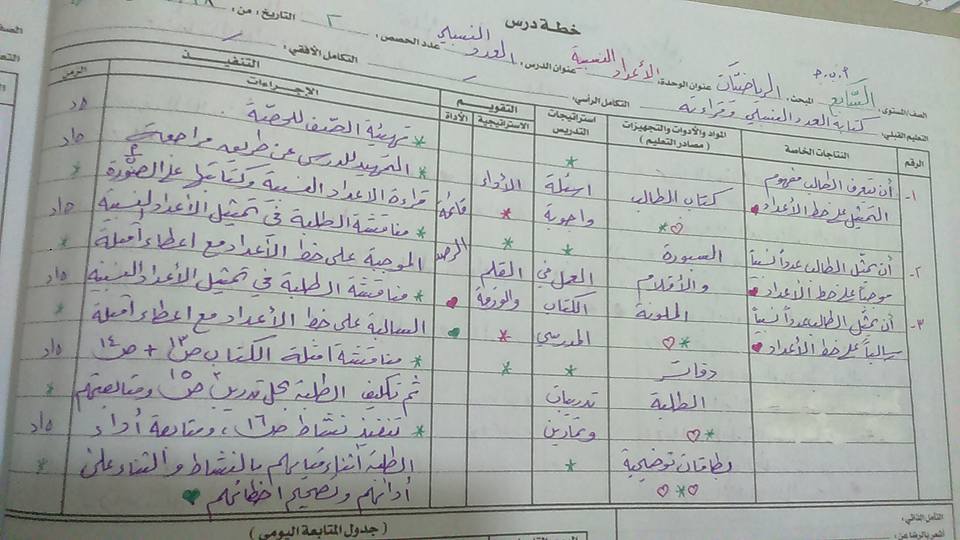 خطة درس
الصف/المستوى: السابع المبحث: الرياضيات عنوان الوحدة: الأعداد النسبية عنوان الدرس: العدد النسبي عدد الحصص: ٢ التاريخ: من:
التعلم القبلي: كتابة العدد النسبي وقراءته التكامل الرأسي: التكامل الأفقي:
الرقم النتاجات الخاصة المواد والأدوات والتجهيزات (مصادر التعليم) استراتيجيات التدريس التقويم الاستراتيجية الأداة التنفيذ الاجراءات الزمن
١- أن يتعرف الطالب مفهوم
التمثيل على خط الأعداد
٢- أن يمثل الطالب عدداً نسبياً
موجباً على خط الأعداد
٣- أن يمثل الطالب عدداً نسبياً
سالباً على خط الأعداد
كتاب الطالب
السبورة
والأقلام
الملونة
دفاتر
الطلبة
بطاقات توضيحية
اسئلة
واجوبة
العمل في
الكتاب
المدرسي
تدريبات
وتمارين
الأداء
القلم
والورقة
قائمة
الرصد
* تهيئة الصف للحصة
* التمهيد للدرس عن طريق مراجعة
قراءة الاعداد النسبية وكتابتها على الصورة
* مناقشة الطلبة في تمثيل الأعداد النسبية
الموجبة على خط الأعداد مع اعطاء أمثلة
* مناقشة الطلبة في تمثيل الأعداد النسبية
السالبة على خط الأعداد مع اعطاء أمثلة
* مناقشة امثلة الكتاب ص١٣ + ص١٤
ثم تكليف الطلبة بحل تدريب ص١٥ ومتابعتهم
* تنفيذ نشاط ص١٦، ومتابعة أداء
الطلبة أثناء قيامهم بالنشاط والثناء على
أدائهم وتصحيح اخطائهم
٥د
٥د
٥د
٥د
٥د
٥د
التأمل الذاتي:
أشعر بالرضا عن:
(جدول المتابعة اليومي)